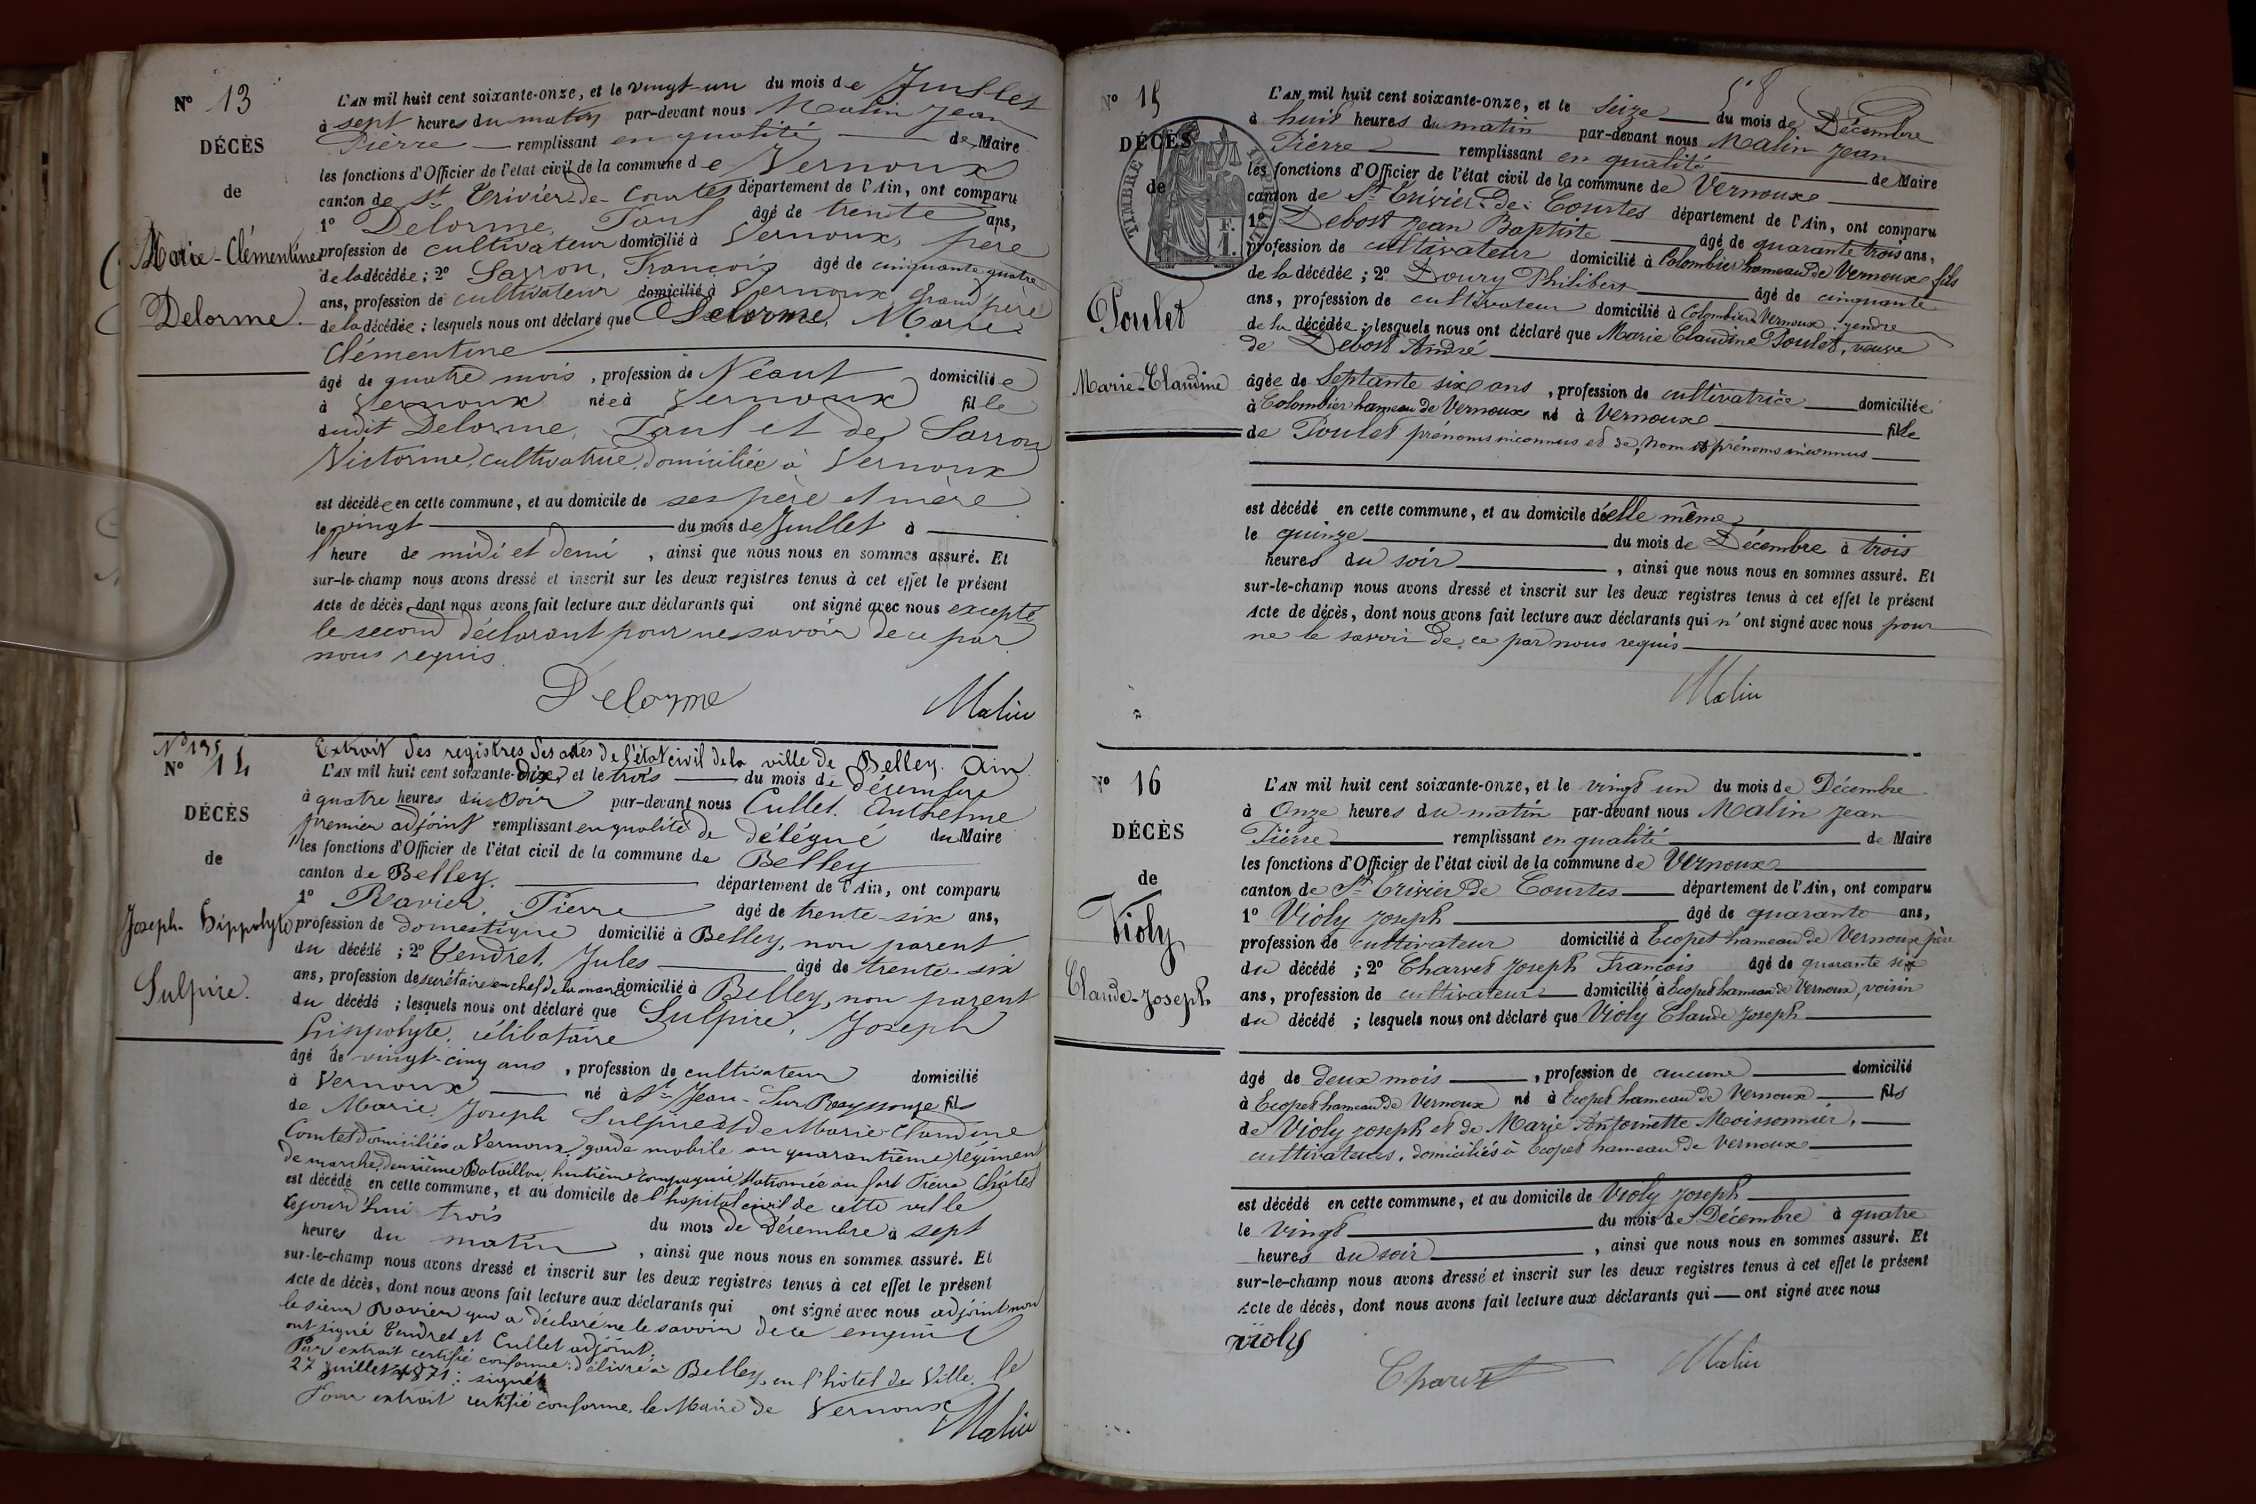 N° 13
DÉCÈS
de
Marie-Clémentine
Delorme.
L'AN mil huit cent soixante-onze, et le vingt-un du mois de Juillet
à sept heures du matin par-devant nous Malin Jean
Pierre remplissant en qualité de Maire
les fonctions d'Officier de l'état civil de la commune de Vernoux
canton de St Trivier-de-Courtes département de l'Ain, ont comparu
1° Delorme, Paul âgé de trente ans,
profession de cultivateur domicilié à Vernoux, père
de la décédée; 2° Sarron, François âgé de cinquante quatre
ans, profession de cultivateur domicilié à Vernoux Grand père
de la décédée; lesquels nous ont déclaré que Delorme, Marie
Clémentine
âgé de quatre mois, profession de Néant domiciliée
à Vernoux née à Vernoux fille
dudit Delorme, Paul et de Sarron
Victorine, cultivatrice, domiciliée à Vernoux
est décédée en cette commune, et au domicile de ses père et mère
le vingt du mois de Juillet à
l'heure de midi et demi, ainsi que nous nous en sommes assuré. Et
sur-le-champ nous avons dressé et inscrit sur les deux registres tenus à cet effet le présent
Acte de décès, dont nous avons fait lecture aux déclarants qui ont signé avec nous excepté
le second déclarant pour ne savoir de ce par
nous requis.
Delorme Malin
N° 135
N° 14
DÉCÈS
de
Joseph-Hippolyte
Sulpice.
Extrait des registres des actes de l'état civil de la ville de Belley. Ain.
L'AN mil huit cent soixante-dix, et le trois du mois de décembre
à quatre heures du soir par-devant nous Cullet. Anthelme
premier adjoint remplissant en qualité de délégué du Maire
les fonctions d'Officier de l'état civil de la commune de Belley
canton de Belley. département de l'Ain, ont comparu
1° Ravier, Pierre âgé de trente-six ans,
profession de domestique domicilié à Belley, non parent
du décédé; 2° Tendret, Jules âgé de trente-six
ans, profession de secrétaire en chef de la mairie domicilié à Belley, non parent
du décédé; lesquels nous ont déclaré que Sulpice, Joseph
hippolyte, célibataire
âgé de vingt-cinq ans, profession de cultivateur domicilié
à Vernoux né à St Jean-Sur Reyssouze fils
de Marie, Joseph Sulpice et de Marie-Claudine
Comtet domiciliés à Vernoux, garde mobile au quarantième régiment
de marche, deuxième Bataillon, huitième compagnie stationnée au fort Pierre Châtel
est décédé en cette commune, et au domicile de l'hopital civil de cette ville
cejourd'hui trois du mois de décembre à sept
heures du matin, ainsi que nous nous en sommes assuré. Et
sur-le-champ nous avons dressé et inscrit sur les deux registres tenus à cet effet le présent
Acte de décès, dont nous avons fait lecture aux déclarants qui ont signé avec nous adjoint non
le sieur Ravier qui a déclaré ne le savoir de ce enquis
ont signé Tendret et Cullet adjoint.
Pour extrait certifié conforme: délivré à Belley, en l'hôtel de Ville, le
27 juillet 1871: signé
Pour extrait certifié conforme, le Maire de Vernoux
Malin
58
N° 15
DÉCÈS
de
TIMBRE IMPÉRIAL
F.
1.
Poulet
Marie-Claudine
L'AN mil huit cent soixante-onze, et le seize du mois de Décembre
à huit heures du matin par-devant nous Malin Jean
Pierre remplissant en qualité de Maire
les fonctions d'Officier de l'état civil de la commune de Vernoux
canton de St Trivier-de-Courtes département de l'Ain, ont comparu
1° Debost Jean Baptiste âgé de quarante trois ans,
profession de cultivateur domicilié à Colombier hameau de Vernoux fils
de la décédée; 2° Doury Philibert âgé de cinquante
ans, profession de cultivateur domicilié à Colombier Vernoux gendre
de la décédée; lesquels nous ont déclaré que Marie Claudine Poulet, veuve
de Debost André
âgée de Septante six ans, profession de cultivatrice domiciliée
à Colombier hameau de Vernoux né à Vernoux fille
de Poulet prénoms inconnus et de, nom et prénoms inconnus
est décédé en cette commune, et au domicile d'elle même
le quinze du mois de Décembre à trois
heures du soir, ainsi que nous nous en sommes assuré. Et
sur-le-champ nous avons dressé et inscrit sur les deux registres tenus à cet effet le présent
Acte de décès, dont nous avons fait lecture aux déclarants qui n'ont signé avec nous pour
ne le savoir de ce par nous requis
Malin
N° 16
DÉCÈS
de
Violy
Claude-Joseph
L'AN mil huit cent soixante-onze, et le vingt un du mois de Décembre
à Onze heures du matin par-devant nous Malin Jean
Pierre remplissant en qualité de Maire
les fonctions d'Officier de l'état civil de la commune de Vernoux
canton de St Trivier De Courtes département de l'Ain, ont comparu
1° Violy Joseph âgé de quarante ans,
profession de cultivateur domicilié à Ecopet hameau de Vernoux père
du décédé; 2° Charvet Joseph François âgé de quarante six
ans, profession de cultivateur domicilié à Ecopet hameau de Vernoux, voisin
du décédé; lesquels nous ont déclaré que Violy Claude Joseph
âgé de deux mois, profession de aucune domicilié
à Ecopet hameau de Vernoux né à Ecopet hameau de Vernoux fils
de Violy Joseph et de Marie Antoinette Moissonnier,
cultivateurs, domiciliés à Ecopet hameau de Vernoux
est décédé en cette commune, et au domicile de Violy Joseph
le vingt du mois de Décembre à quatre
heures du soir, ainsi que nous nous en sommes assuré. Et
sur-le-champ nous avons dressé et inscrit sur les deux registres tenus à cet effet le présent
Acte de décès, dont nous avons fait lecture aux déclarants qui ont signé avec nous
violy
Charvet Malin